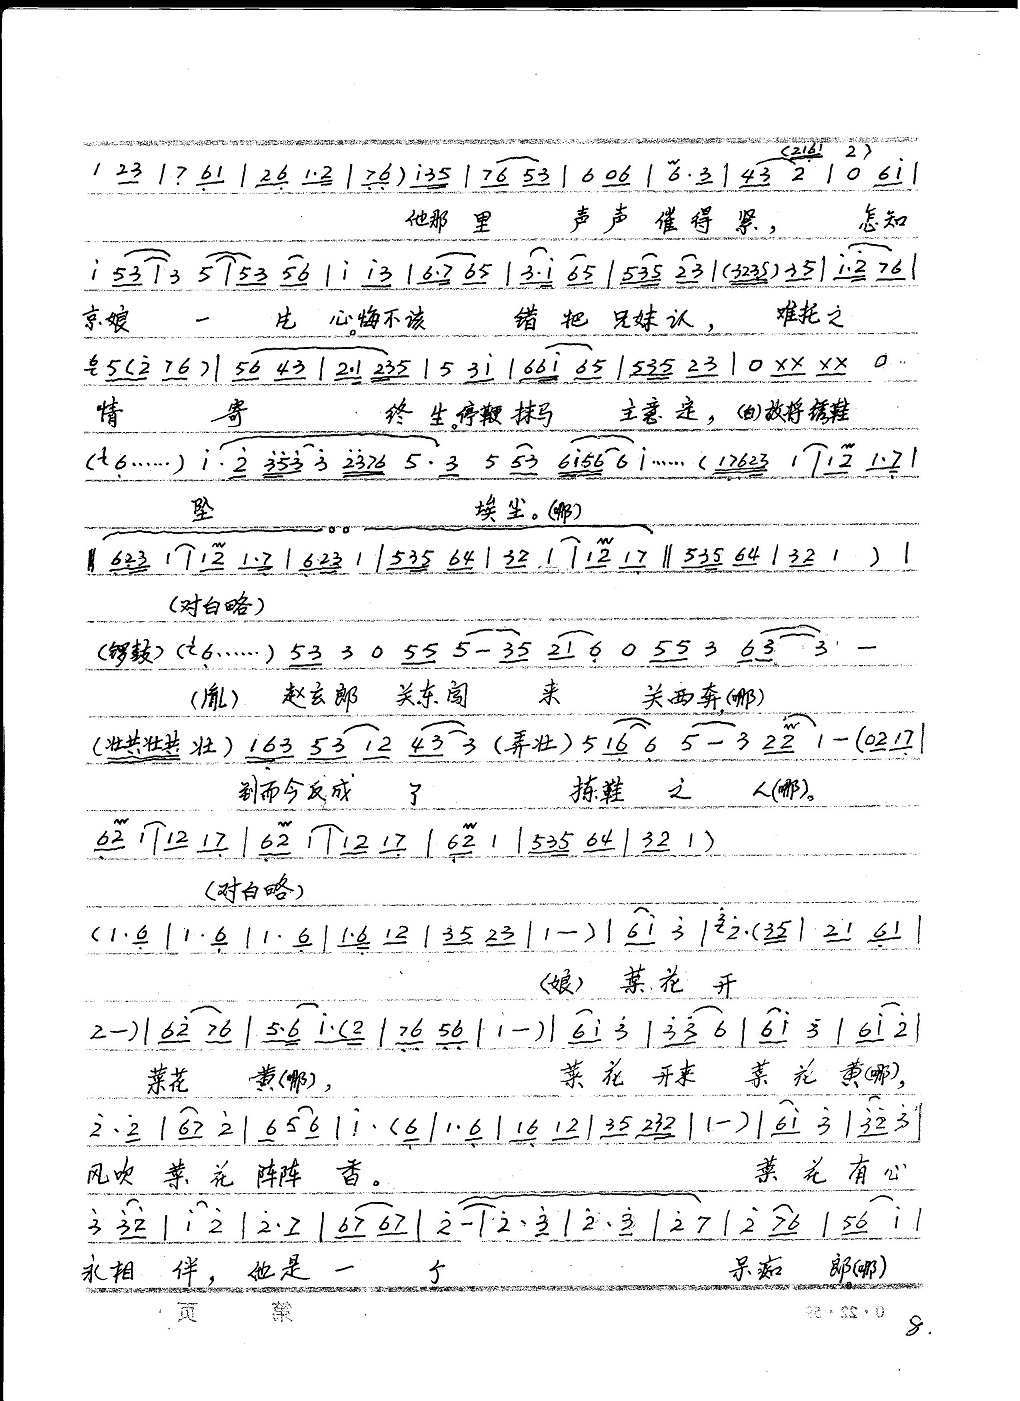 1 23 | 7 61 | 26 1·2 | 76) i35 | 76 53 | 6 06 | 6·3 | 43 2 (2161 2) | 0 6i |
他那里 声声催得紧， 怎知
i 53 i 3 5 i 53 56 | i i3 | 6·7 65 | 3·i 65 | 535 23 | (3235) 35 | i·2 76 |
京娘 一 片 心。悔不该 错把兄妹认， 难托之
5 (2 76) | 56 43 | 2·1 235 | 5 3i | 66i 65 | 535 23 | 0 XX XX 0
情 寄 终生。停鞭抹马 主意定，(白)故将绣鞋
(6……) i·2 353 3 2376 5·3 5 53 6i56 6 i…… (17623 1 | 12 1·7 |
坠 埃尘。(哪)
‖ 623 1 | 12 1·7 | 6·23 1 | 535 64 | 32 1 | 12 17 ‖ 535 64 | 32 1 ) |
(对白略)
(锣鼓) (6……) 53 3 0 55 5－35 21 6 0 55 3 63 3 －
(胤) 赵玄郎 关东闯 来 关西奔，(哪)
(壮共壮共 壮) 163 53 12 43 3 (弄壮) 5 16 6 5－3 22 1－(02 17 |
到而今反成 了 拣鞋 之 人(哪)。
62 1 | 12 17 | 62 1 | 12 17 | 62 1 | 535 64 | 32 1 )
(对白略)
(1·6 | 1·6 | 1·6 | 1·6 12 | 35 23 | 1－) | 6i 3 | 2·(35 | 21 61 |
(娘) 菜花 开
2－) | 62 76 | 5·6 i·(2 | 76 56 | i－) | 6i 3 | 33 6 | 6i 3 | 6i 2 |
菜花 黄(哪)， 菜花开来 菜花黄(哪)，
2·2 | 67 2 | 65 6 | i·(6 | 1·6 | 16 12 | 35 232 | 1－) | 6i 3 | 32 3 |
风吹 菜花阵阵 香。 菜花有心
3 32 | i 2 | 2·7 | 67 67 | 2－ | 2·3 | 2·3 | 2 7 | 2 76 | 56 i |
永相 伴，他是一 个 呆痴 郎，(哪)
第 页
8.